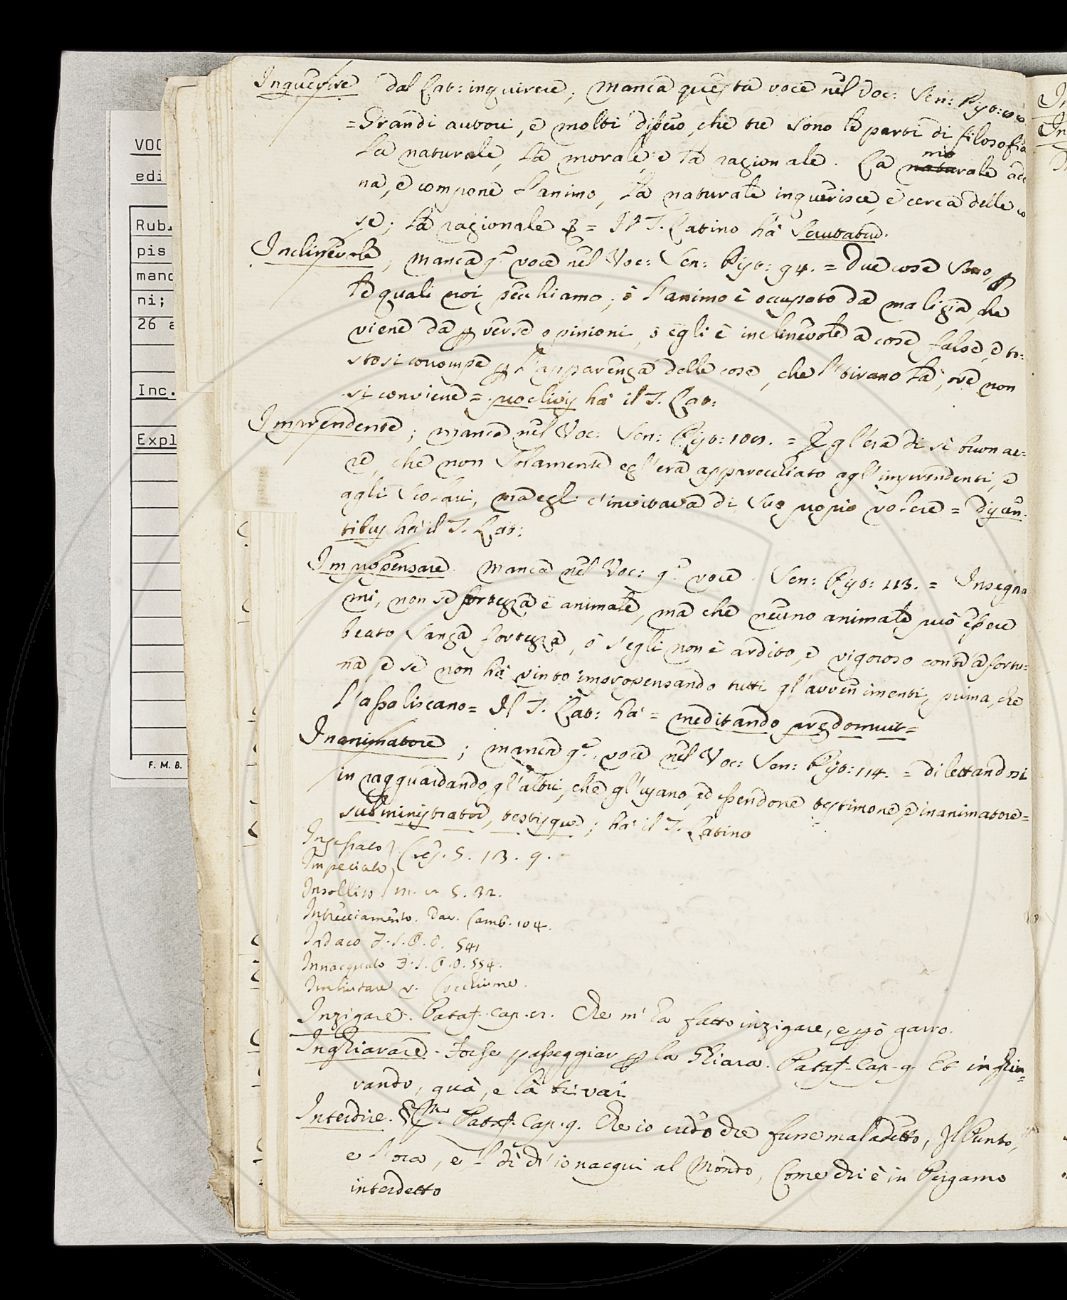 VOC
edi
Rub.
pis
manc
ni;
26 a
Inc.
Expl
F. M. B.
Inquerire dal Lat: inquirere, manca questa voce nel Voc: Sen: Pist:
= Grandi autori, e molti dissero, che tre sono le parti di filosofia
La naturale, la morale, e la razionale. La naturale
na, e compone l'animo, la naturale inquerisce, e cerca delle co
se; la razionale = Il T. Latino ha Scrutatur.
Inclinevole, manca q.ª voce nel Voc: Sen: Pist: 94. = Due cose sono, p
le quali noi pecchiamo; o l'animo è occupato da malizia, che
viene da perverse opinioni, o egli è inclinevole a cose false, e to-
sto si corrompe p l'apparenza delle cose, che 'l tirano là, ove non
si conviene = proclivis ha il T. Lat:
Imprendente; manca nel Voc: Sen: Pist: 109. = Egl'era di sì buon ae-
re, che non solamente egl'era apparecchiato agl'imprendenti, e
agli Scolari, ma egli c'invitava di suo propio volere = discen-
tibus ha il T. Lat:
Impropensare. manca nel Voc: q.ª voce. Sen: Pist: 113. = Insegna
mi, non se fortezza è animale, ma che neuno animale può essere
beato sanza fortezza, o s'egli non è ardito, e vigoroso contr'a fortu-
na, e se non ha vinto impropensando tutti gl'avvenimenti, prima, che
l'assaliscano = Il T. Lat: ha = meditando praedomuit =
Inanimatore; manca q.ª voce nel Voc: Sen: Pist: 114. = dilettandosi
in ragguardando gl'altri, che gl'usano, ed essendone testimone, e inanimatore =
subministrator, testisque; ha il T. Latino
Ingessato
Impeciato } Cresc. 5. 13. 9.
Insollito
Intrecciamento. Dav. Camb. 104.
Indaco
Innacquato
Inzigare. Pataf. Cap. Che m'ha fatto inzigare, e però garro.
Inghiarare. Forse passeggiar p la Ghiara. Pataf. Cap. 9. Et inghia=
rando, quà, e là ti vai
Interdire. Pataf. Cap. 9. Che io credo che fusse maladetto, Il Punto,
e l'ora, e 'l dì ch'io nacqui al Mondo, Come chi è in Pergamo
interdetto